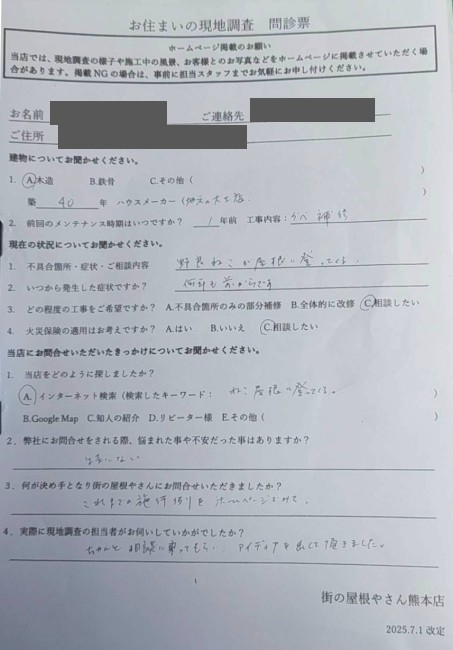 お住まいの現地調査　問診票
ホームページ掲載のお願い
当店では、現地調査の様子や施工中の風景、お客様とのお写真などをホームページに掲載させていただく場
合があります。掲載NGの場合は、事前に担当スタッフまでお気軽にお申し付けください。
お名前　ご連絡先
ご住所
建物についてお聞かせください。
1. A.木造　B.鉄骨　C.その他（　）
築 40 年　ハウスメーカー（地元の大工店　）
2. 前回のメンテナンス時期はいつですか？ 1 年前　工事内容：かべ補修
現在の状況についてお聞かせください。
1. 不具合箇所・症状・ご相談内容　野良ねこが屋根に登ってくる。
2. いつから発生した症状ですか？　何年も前からです
3. どの程度の工事をご希望ですか？ A.不具合箇所のみの部分補修 B.全体的に改修 C.相談したい
4. 火災保険の適用はお考えですか？ A.はい　B.いいえ　C.相談したい
当店にお問合せいただいたきっかけについてお聞かせください。
1. 当店をどのように探しましたか？
A.インターネット検索（検索したキーワード：　ねこ 屋根に登ってくる。　）
B.Google Map　C.知人の紹介　D.リピーター様　E.その他（　）
2. 弊社にお問合せをされる際、悩まれた事や不安だった事はありますか？
とくにない
3. 何が決め手となり街の屋根やさんにお問合せいただきましたか？
これまでの施行例をホームページでみて。
4. 実際に現地調査の担当者がお伺いしていかがでしたか？
ちゃんと相談に乗ってもらい、アイディアを出して頂きました。
1
街の屋根やさん熊本店
2025.7.1 改定